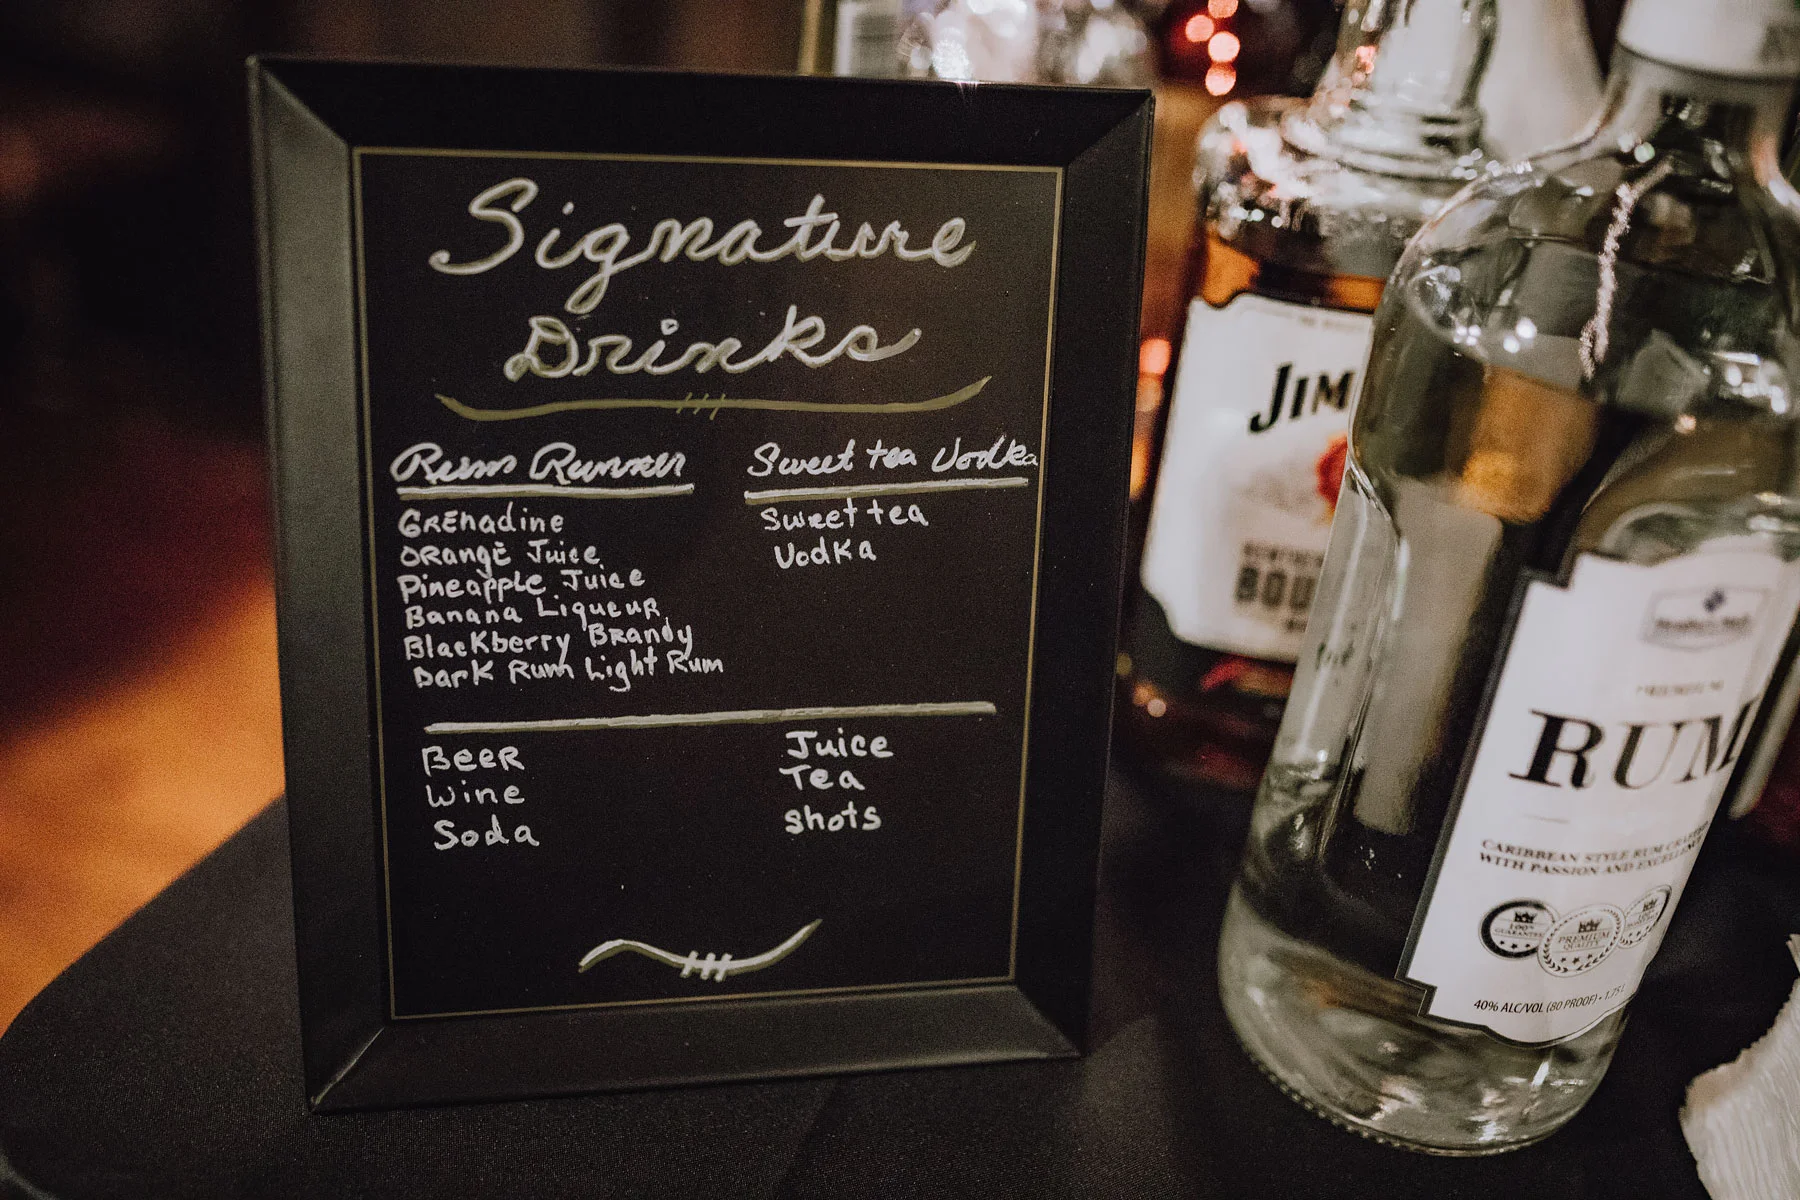 Signature
Drinks
Rum Runner
Grenadine
Orange Juice
Pineapple Juice
Banana Liqueur
Blackberry Brandy
Dark Rum Light Rum
Sweet tea Vodka
Sweet tea
Vodka
Beer
Wine
Soda
Juice
Tea
shots
JIM
BOU
RUM
CARIBBEAN STYLE RUM
WITH PASSION AND
PREMIUM
QUALITY
40% ALC/VOL (80 PROOF) • 1.75 L